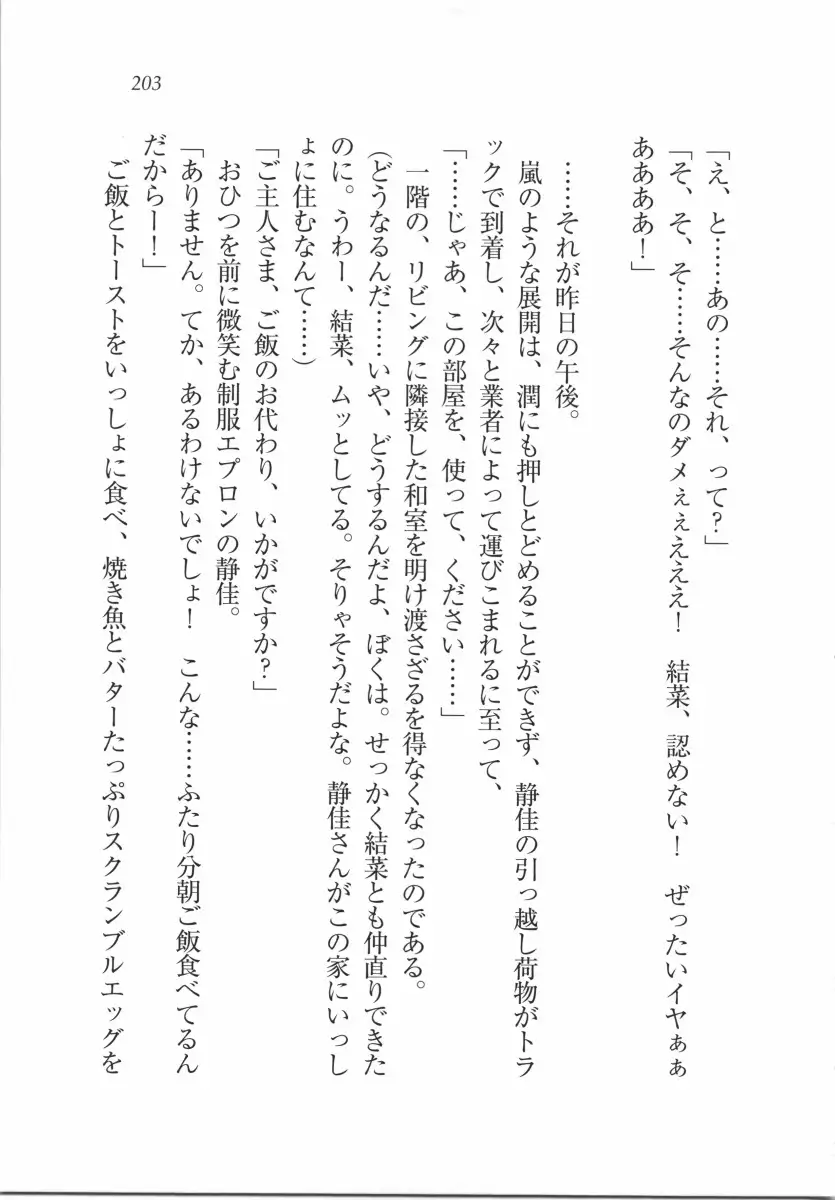 203
「え、と……あの……それ、って？」
「そ、そ、そ……そんなのダメぇぇえええ！　結菜、認めない！　ぜったいイヤぁぁ
ああああ！」
……それが昨日の午後。
嵐のような展開は、潤にも押しとどめることができず、静佳の引っ越し荷物がトラ
ックで到着し、次々と業者によって運びこまれるに至って、
「……じゃあ、この部屋を、使って、ください……」
一階の、リビングに隣接した和室を明け渡さざるを得なくなったのである。
（どうなるんだ……いや、どうするんだよ、ぼくは。せっかく結菜とも仲直りできた
のに。うわー、結菜、ムッとしてる。そりゃそうだよな。静佳さんがこの家にいっし
ょに住むなんて……）
「ご主人さま、ご飯のお代わり、いかがですか？」
おひつを前に微笑む制服エプロンの静佳。
「ありません。てか、あるわけないでしょ！　こんな……ふたり分朝ご飯食べてるん
だからー！」
ご飯とトーストをいっしょに食べ、焼き魚とバターたっぷりスクランブルエッグを